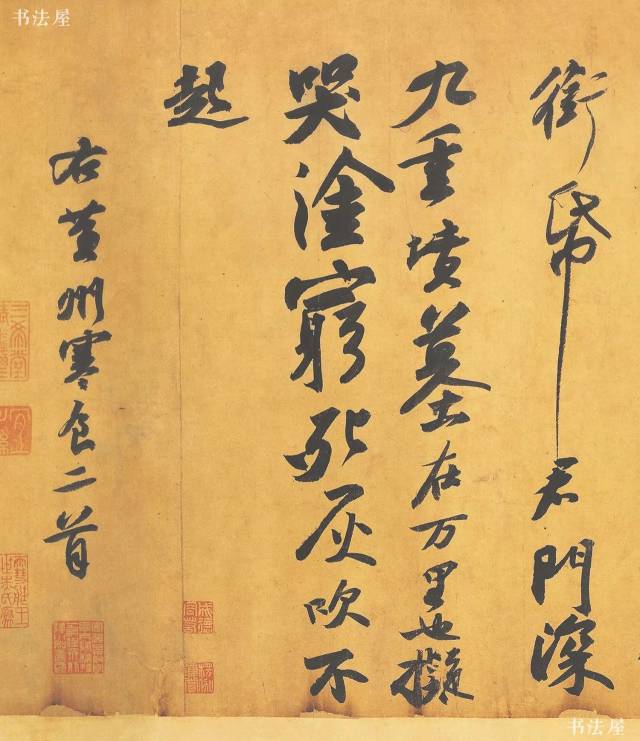 銜帋君門深
九重墳墓在万里也擬
哭塗窮死灰吹不
起
右黃州寒食二首
书法屋
书法屋